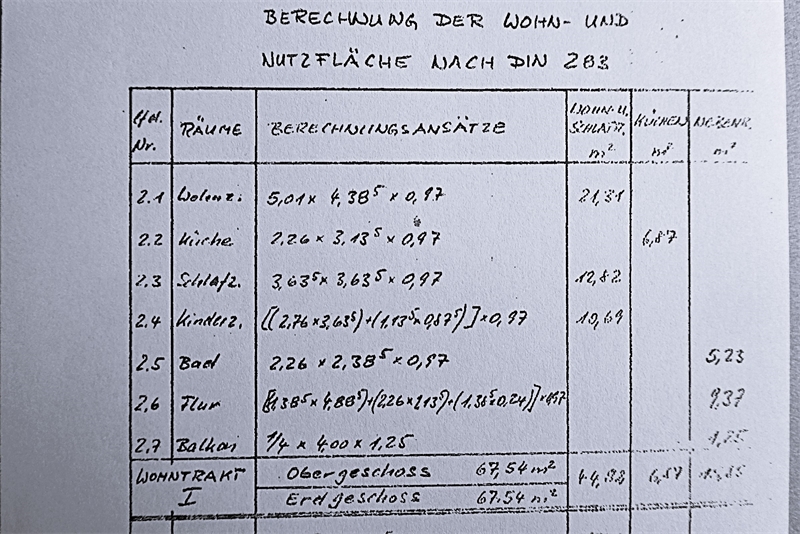 BERECHNUNG DER WOHN- UND
NUTZFLÄCHE NACH DIN 283
lfd. Nr. RÄUME BERECHNUNGSANSÄTZE WOHN-U. SCHLAFR. m² KÜCHEN m² NEBENR. m²
2.1 Wohnz. 5,01 x 4,38⁵ x 0,97 21,31
2.2 Küche 2,26 x 3,13⁵ x 0,97 6,87
2.3 Schlafz. 3,63⁵ x 3,63⁵ x 0,97 12,82
2.4 Kinderz. [(2,76 x 3,63⁵)+(1,13⁵ x 0,87⁵)] x 0,97 10,69
2.5 Bad 2,26 x 2,38⁵ x 0,97 5,23
2,6 Flur [(1,38⁵ x 4,88⁵)+(2,26 x 1,13⁵)+(1,38⁵ x 0,24)] x 0,97 9,37
2,7 Balkon 1/4 x 4,00 x 1,25 1,25
WOHNTRAKT I Obergeschoss 67,54 m² 44,82 6,87 15,85
Erdgeschoss 67.54 m²